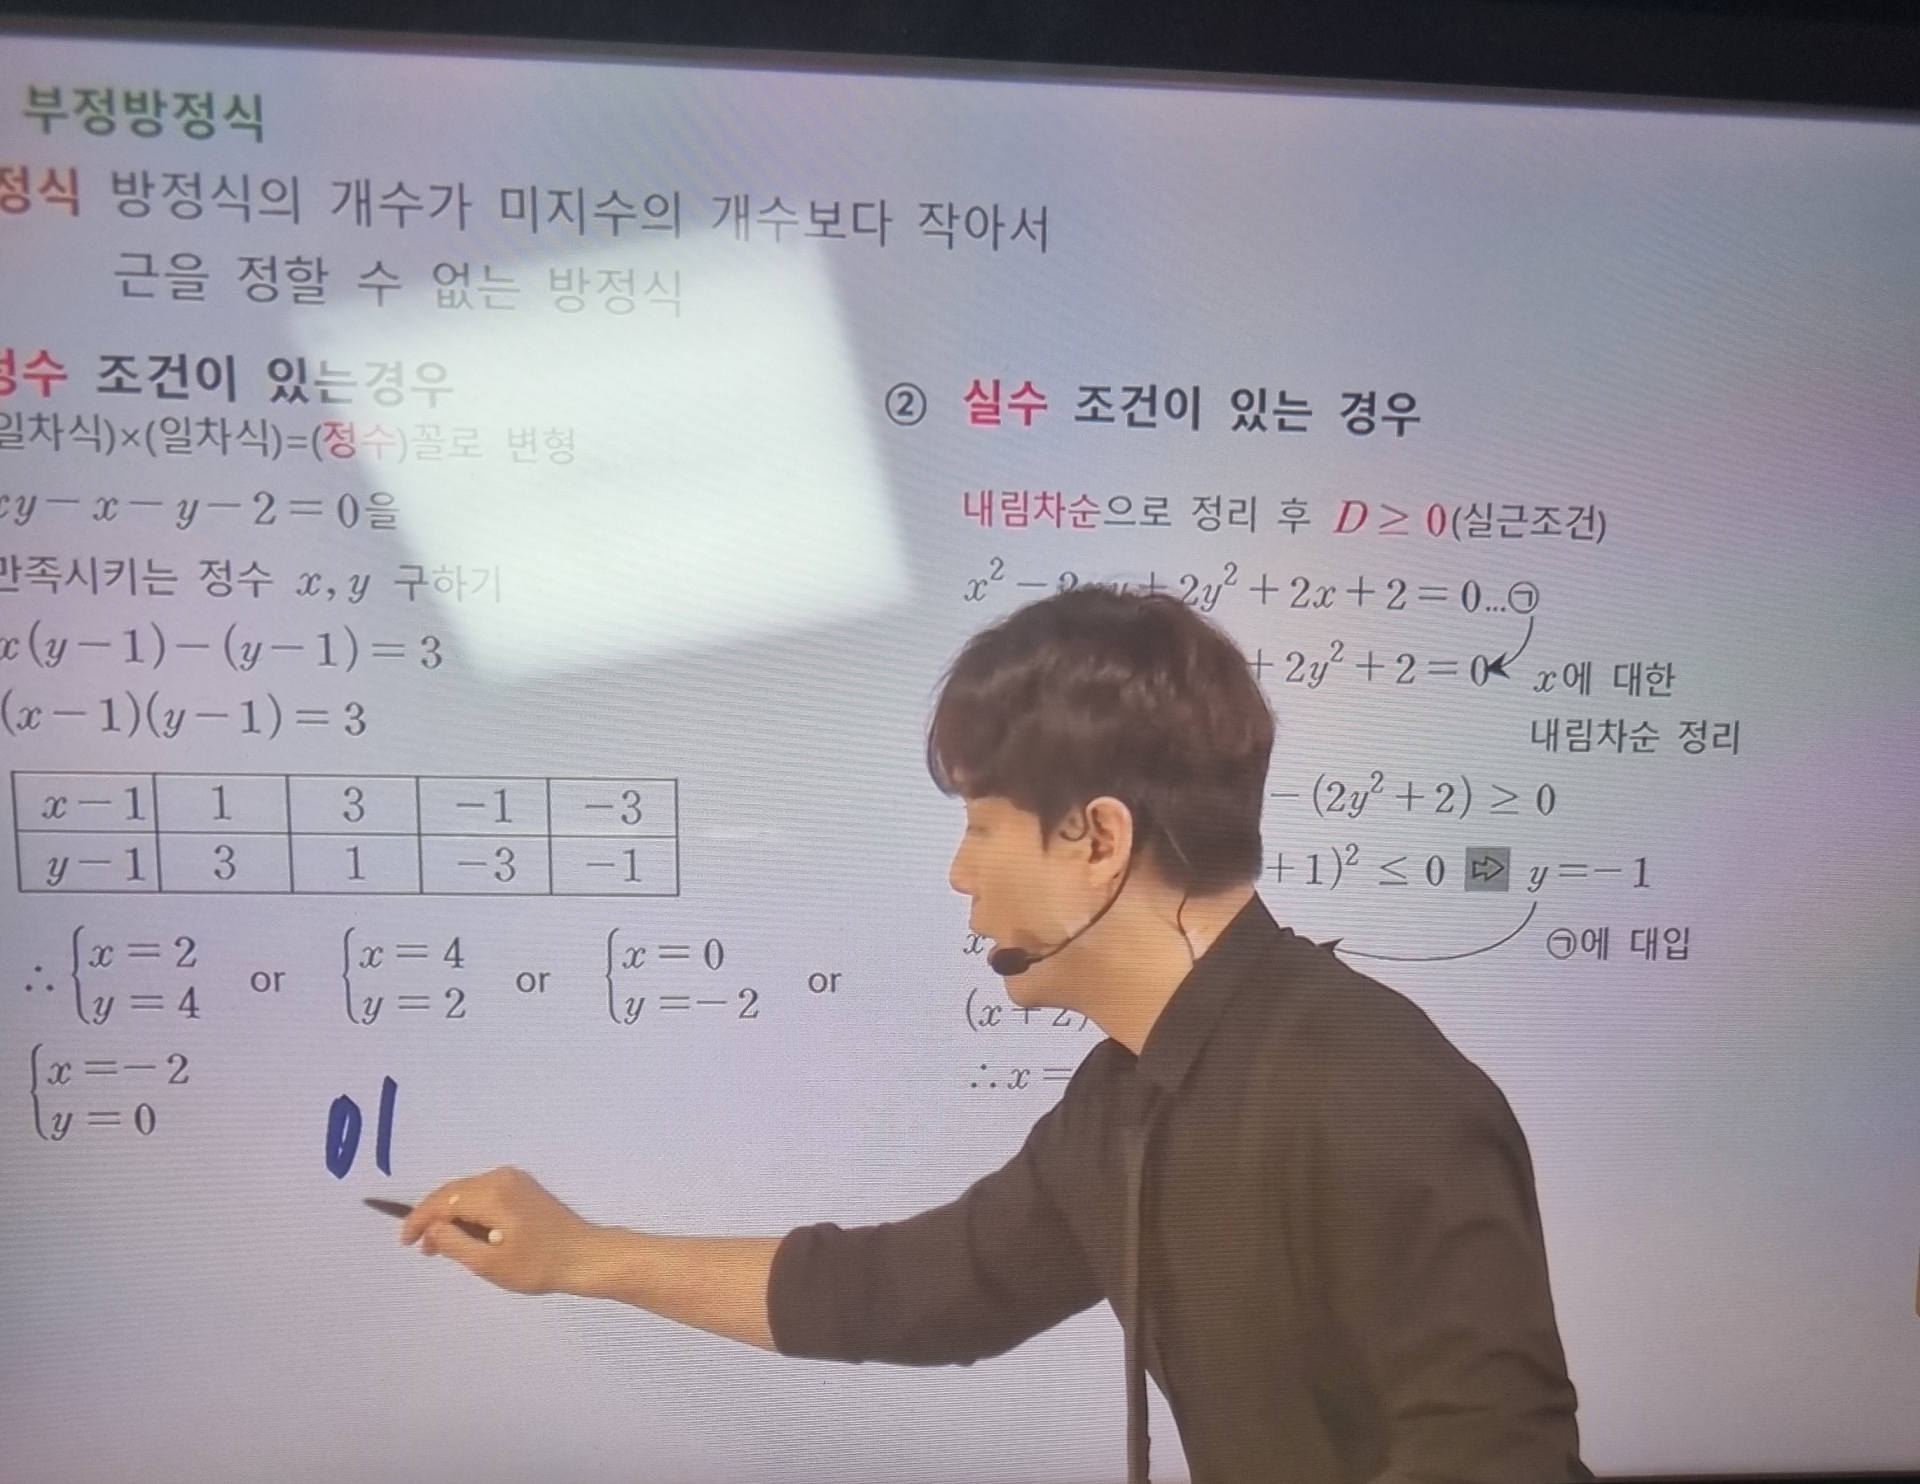 부정방정식
정식 방정식의 개수가 미지수의 개수보다 작아서
근을 정할 수 없는 방정식
정수 조건이 있는경우
일차식)×(일차식)=(정수)꼴로 변형
xy-x-y-2=0을
만족시키는 정수 x, y 구하기
x(y-1)-(y-1)=3
(x-1)(y-1)=3
x-1 1 3 -1 -3
y-1 3 1 -3 -1
∴ {x=2 y=4 or {x=4 y=2 or {x=0 y=-2 or
{x=-2 y=0
이
② 실수 조건이 있는 경우
내림차순으로 정리 후 D≥0(실근조건)
x²-2xy+2y²+2x+2=0...㉠
+2y²+2=0 x에 대한
내림차순 정리
-(2y²+2)≥0
+1)²≤0 ⇨ y=-1
x
㉠에 대입
(x+2)
∴x=